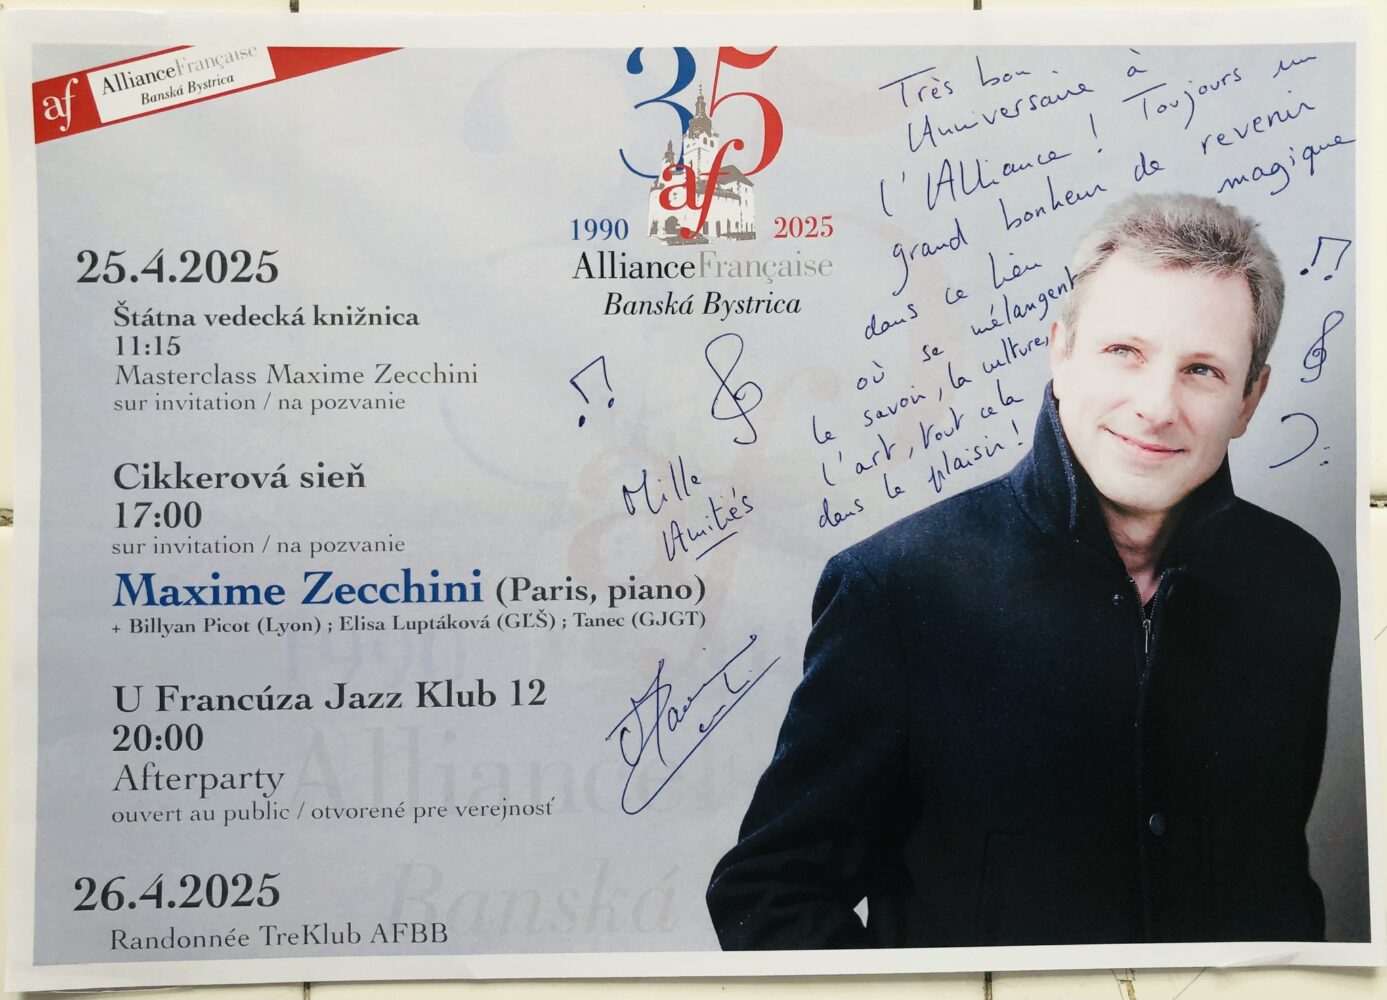 af AllianceFrançaise
Banská Bystrica
35
af
1990 2025
AllianceFrançaise
Banská Bystrica
25.4.2025
Štátna vedecká knižnica
11:15
Masterclass Maxime Zecchini
sur invitation / na pozvanie
Cikkerová sieň
17:00
sur invitation / na pozvanie
Maxime Zecchini (Paris, piano)
+ Billyan Picot (Lyon) ; Elisa Luptáková (GĽŠ) ; Tanec (GJGT)
U Francúza Jazz Klub 12
20:00
Afterparty
ouvert au public / otvorené pre verejnosť
26.4.2025
Randonnée TreKlub AFBB
Très bon
Anniversaire à
l'Alliance ! Toujours un
grand bonheur de revenir
dans ce lieu magique
où se mélangent
le savoir, la culture,
l'art, tout cela
dans le plaisir !
Mille
Amitiés
1990
Alliance
Banská